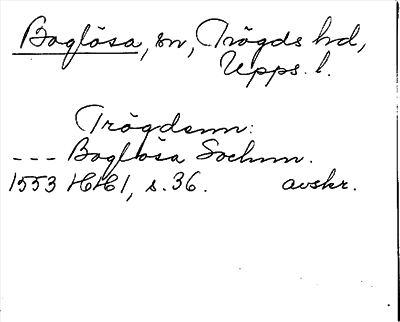 Boglösa, sn, Trögds hd,
Upps. l.
Trögdsnn:
--- Boglösa Sochnn.
1553 HH1, s. 36. avskr.